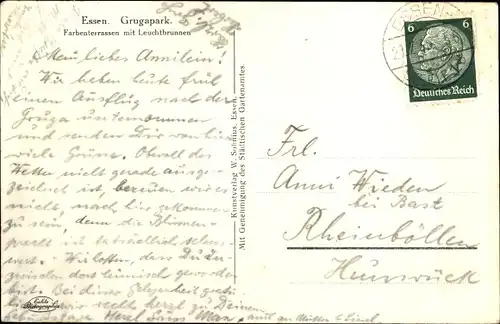 Essen. Grugapark.
Farbenterrassen mit Leuchtbrunnen
Mein liebes Annilein!
Wir haben heute früh
einen Ausflug nach der
Gruga unternommen
und senden Dir von hier
viele Grüsse. Obwohl das
Wetter nicht gerade ausge-
zeichnet ist, bereuen wir es
nicht, nach hier gekommen
zu sein, denn die Blumen-
pracht ist tatsächlich sehens-
wert. Wir hoffen, dass Du in-
zwischen dort heimisch gewor-
den bist. Bei dieser Gelegenheit
wir recht herzl. zu Deinem
Kunstverlag W. Sohnius, Essen.
Mit Genehmigung des Städtischen Gartenamtes.
ESSEN
6 6
Deutsches Reich
Frl.
Anni Wieden
bei Bast
Rheinböllen
Hunsrück
Echte
Photographie